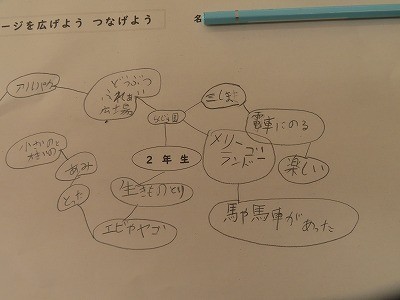 ージを広げよう つなげよう
名
アルパカ
どうぶつ
ふれあい
広場
三しまに
電車にのる
楽しい
メリーゴ
ランドー
馬や馬車があった
2年生
生きものとり
エビやヤゴ
とった
あみ
小さいのと
大きいの